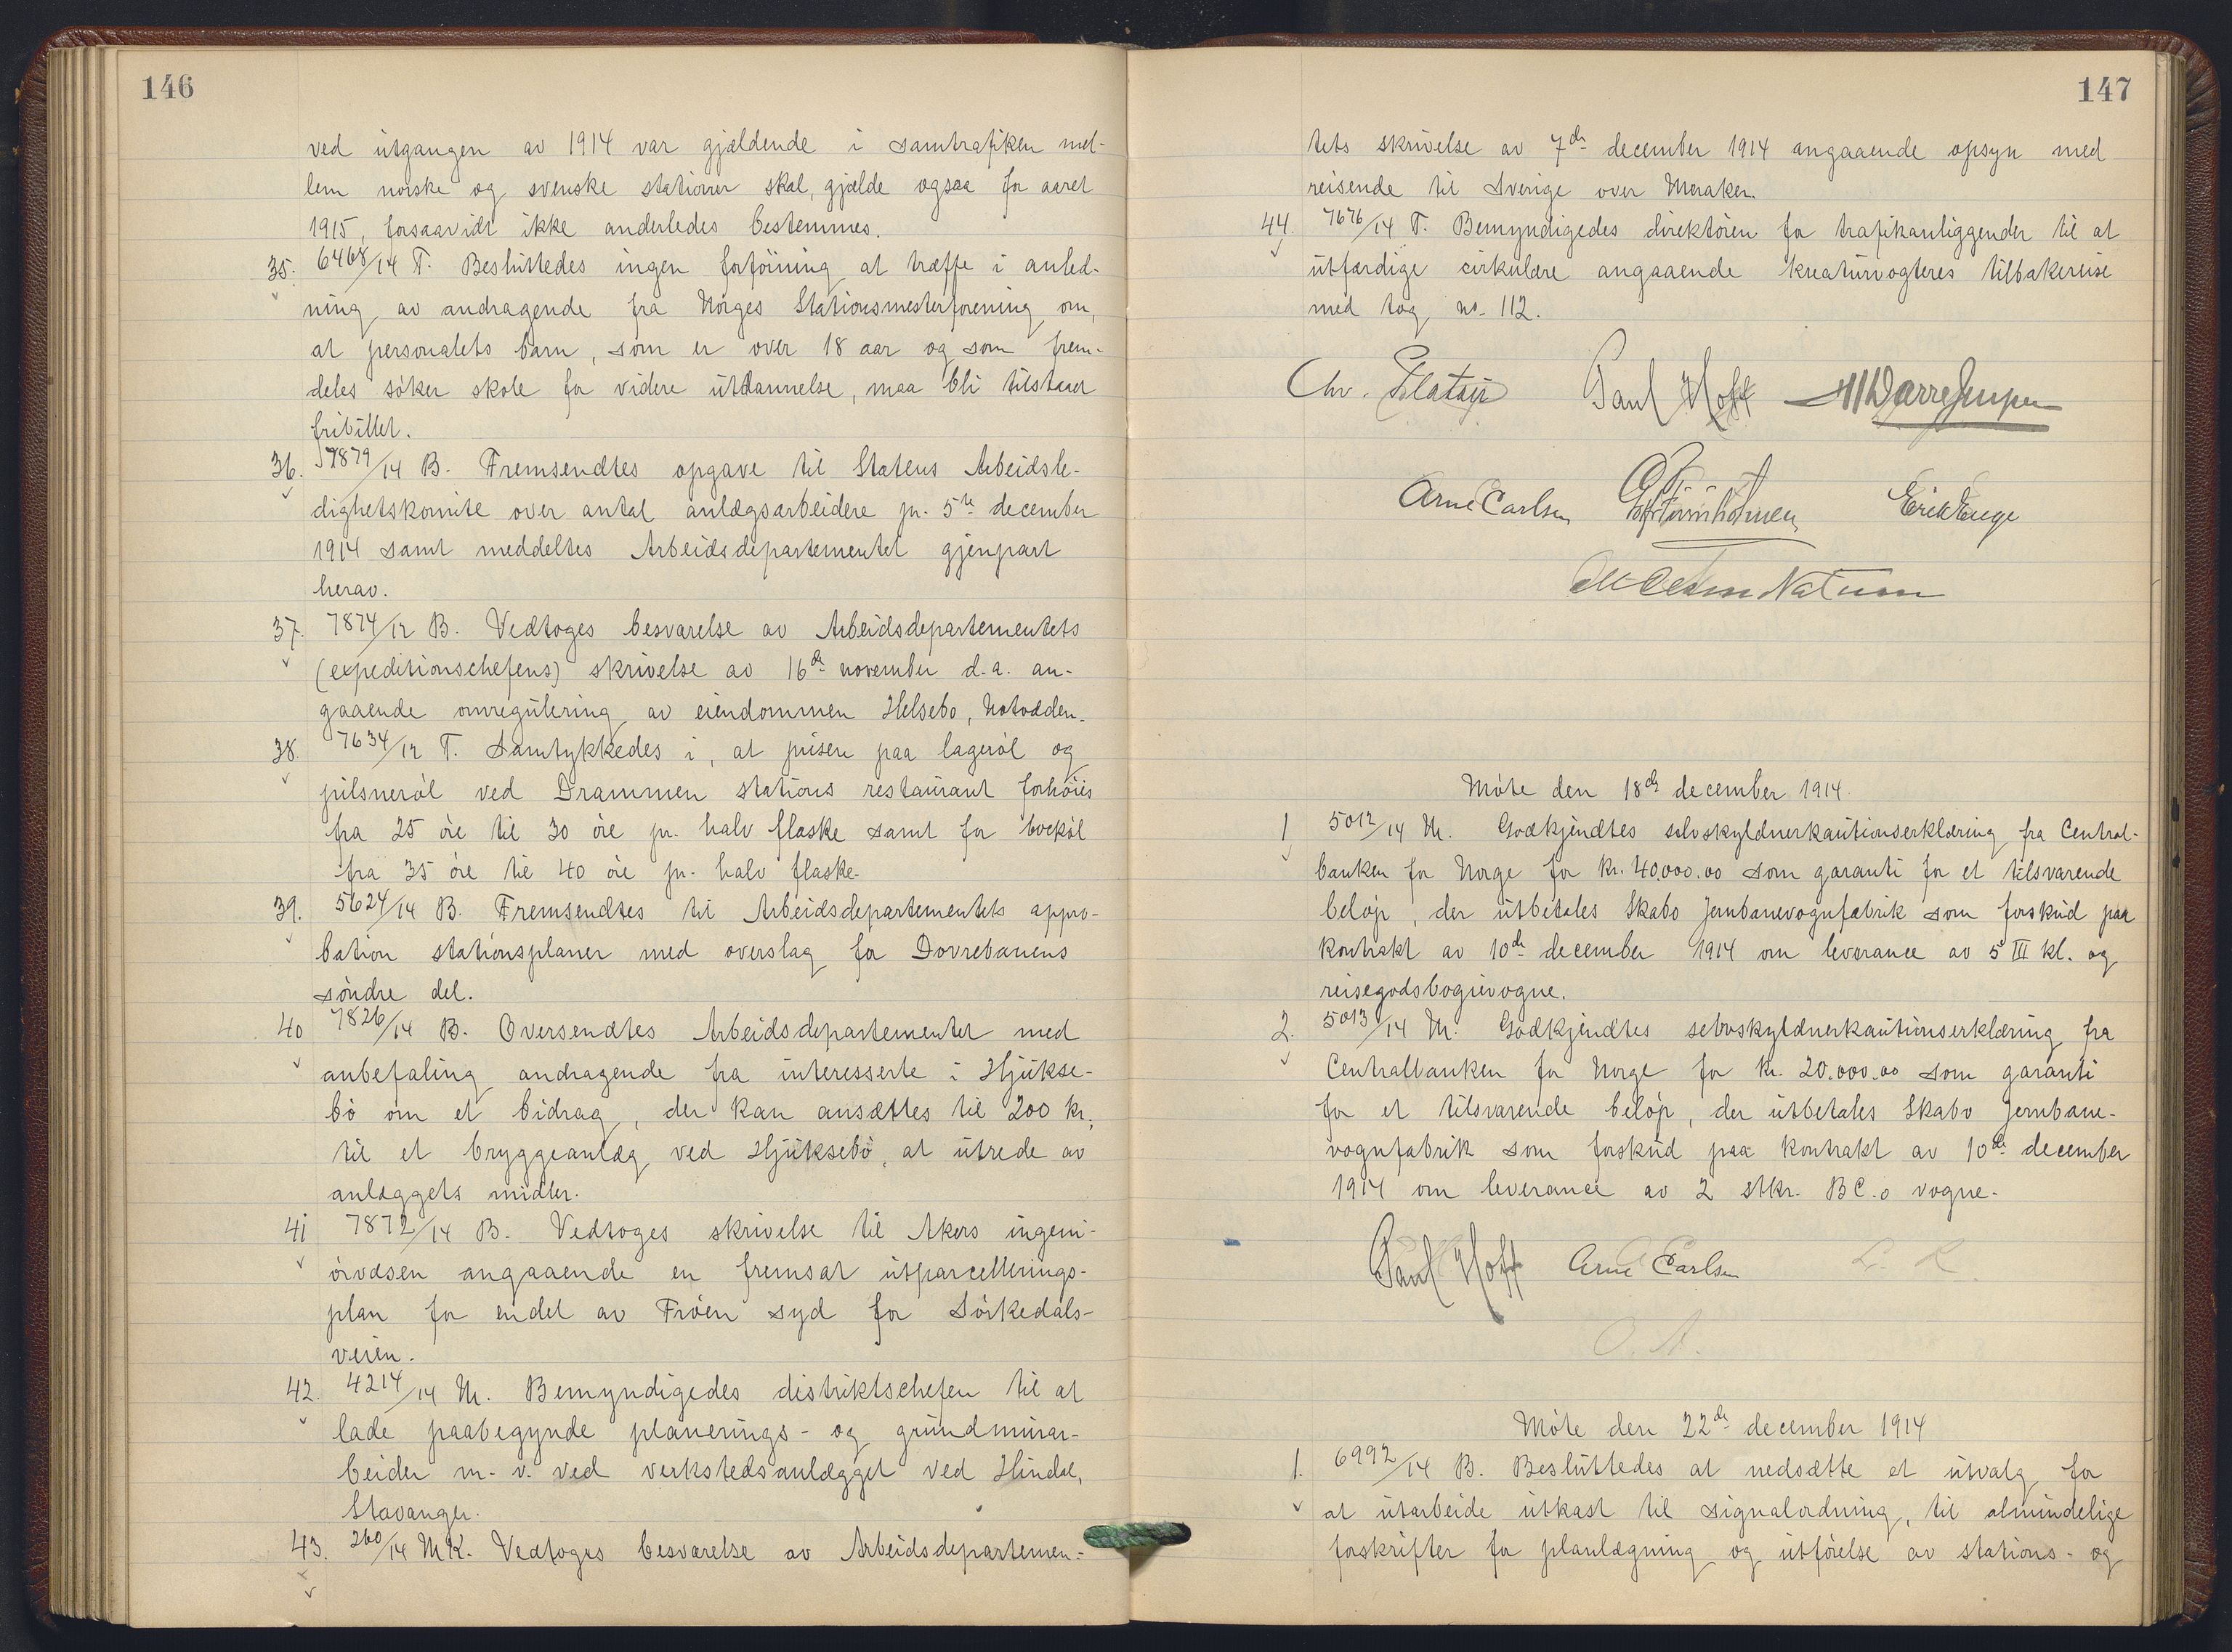 146
ved utgangen av 1914 var gjældende i samtrafiken mel-
lem norske og svenske stationer skal gjælde ogsaa for aaret
1915, forsaavidt ikke anderledes bestemmes.
35. 6468/14 T. Besluttedes ingen forföining at træffe i anled-
ning av andragende fra Norges Stationsmesterforening om,
at personalets barn, som er over 18 aar og som frem-
deles söker skole for videre utdannelse, maa bli tilstaaet
fribillet.
36. 7879/14 B. Fremsendtes opgave til Statens Arbeidsle-
dighetskomite over antal anlægsarbeidere pr. 5te december
1914 samt meddeltes Arbeidsdepartementet gjenpart
herav.
37. 7874/12 B. Vedtoges besvarelse av Arbeidsdepartementets
(expeditionschefens) skrivelse av 16de november d.a. an-
gaaende omregulering av eiendommen Helsebo, Notodden.
38. 7634/12 T. Samtykkedes i, at prisen paa lageröl og
pilsneröl ved Drammen stations restaurant forhöies
fra 25 öre til 30 öre pr. halv flaske samt for boeköl
fra 35 öre til 40 öre pr. halv flaske.
39. 5624/14 B. Fremsendtes til Arbeidsdepartementets appro-
bation stationsplaner med overslag for Dovrebanens
söndre del.
40 7826/14 B. Oversendtes Arbeidsdepartementet med
anbefaling andragende fra interesserte i Hjukse-
bö om et bidrag, der kan ansættes til 200 kr,
til et bryggeanlæg ved Hjuksebö, at utrede av
anlæggets midler.
41 7872/14 B. Vedtoges skrivelse til Akers ingeni-
örvæsen angaaende en fremsat utparcellerings-
plan for endel av Fröen syd for Sörkedals-
veien.
42. 4214/14 M. Bemyndigedes distriktschefen til at
lade paabegynde planerings- og grundmurar-
beider m. v. ved verkstedsanlægget ved Hindal,
Stavanger.
43. 260/14 MK. Vedtoges besvarelse av Arbeidsdepartemen-
147
tets skrivelse av 7de december 1914 angaaende opsyn med
reisende til Sverige over Meraker.
44. 7676/14 T. Bemyndigedes direktören for trafikanliggender til at
utfærdige cirkulære angaaende kreaturvogteres tilbakereise
med tog no. 112.
Chr. Platou Paul Hoff
Arne Carlsen Erik Enge
Möte den 18de december 1914.
1 5012/14 M. Godkjendtes selvskyldnerkautionserklæring fra Central-
banken for Norge for kr. 40.000.00 som garanti for et tilsvarende
belöp, der utbetales Skabo Jernbanevognfabrik som forskud paa
kontrakt av 10de december 1914 om leverance av 5 III kl. og
reisegodsbogievogne.
2. 5013/14 M. Godkjendtes selvskyldnerkautionserklæring fra
Centralbanken for Norge for kr. 20.000.00 som garanti
for et tilsvarende belöp, der utbetales Skabo Jernbane-
vognfabrik som forskud paa kontrakt av 10de december
1914 om leverance av 2 stkr. BC.o vogne.
Paul Hoff Arne Carlsen
Möte den 22de december 1914
1. 6992/14 B. Besluttedes at nedsætte et utvalg for
at utarbeide utkast til signalordning, til almindelige
forskrifter for planlægning og utförelse av stations- og